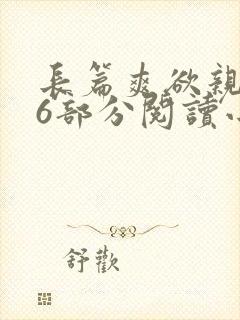 長篇爽欲親
6部分閱讀
舒歡